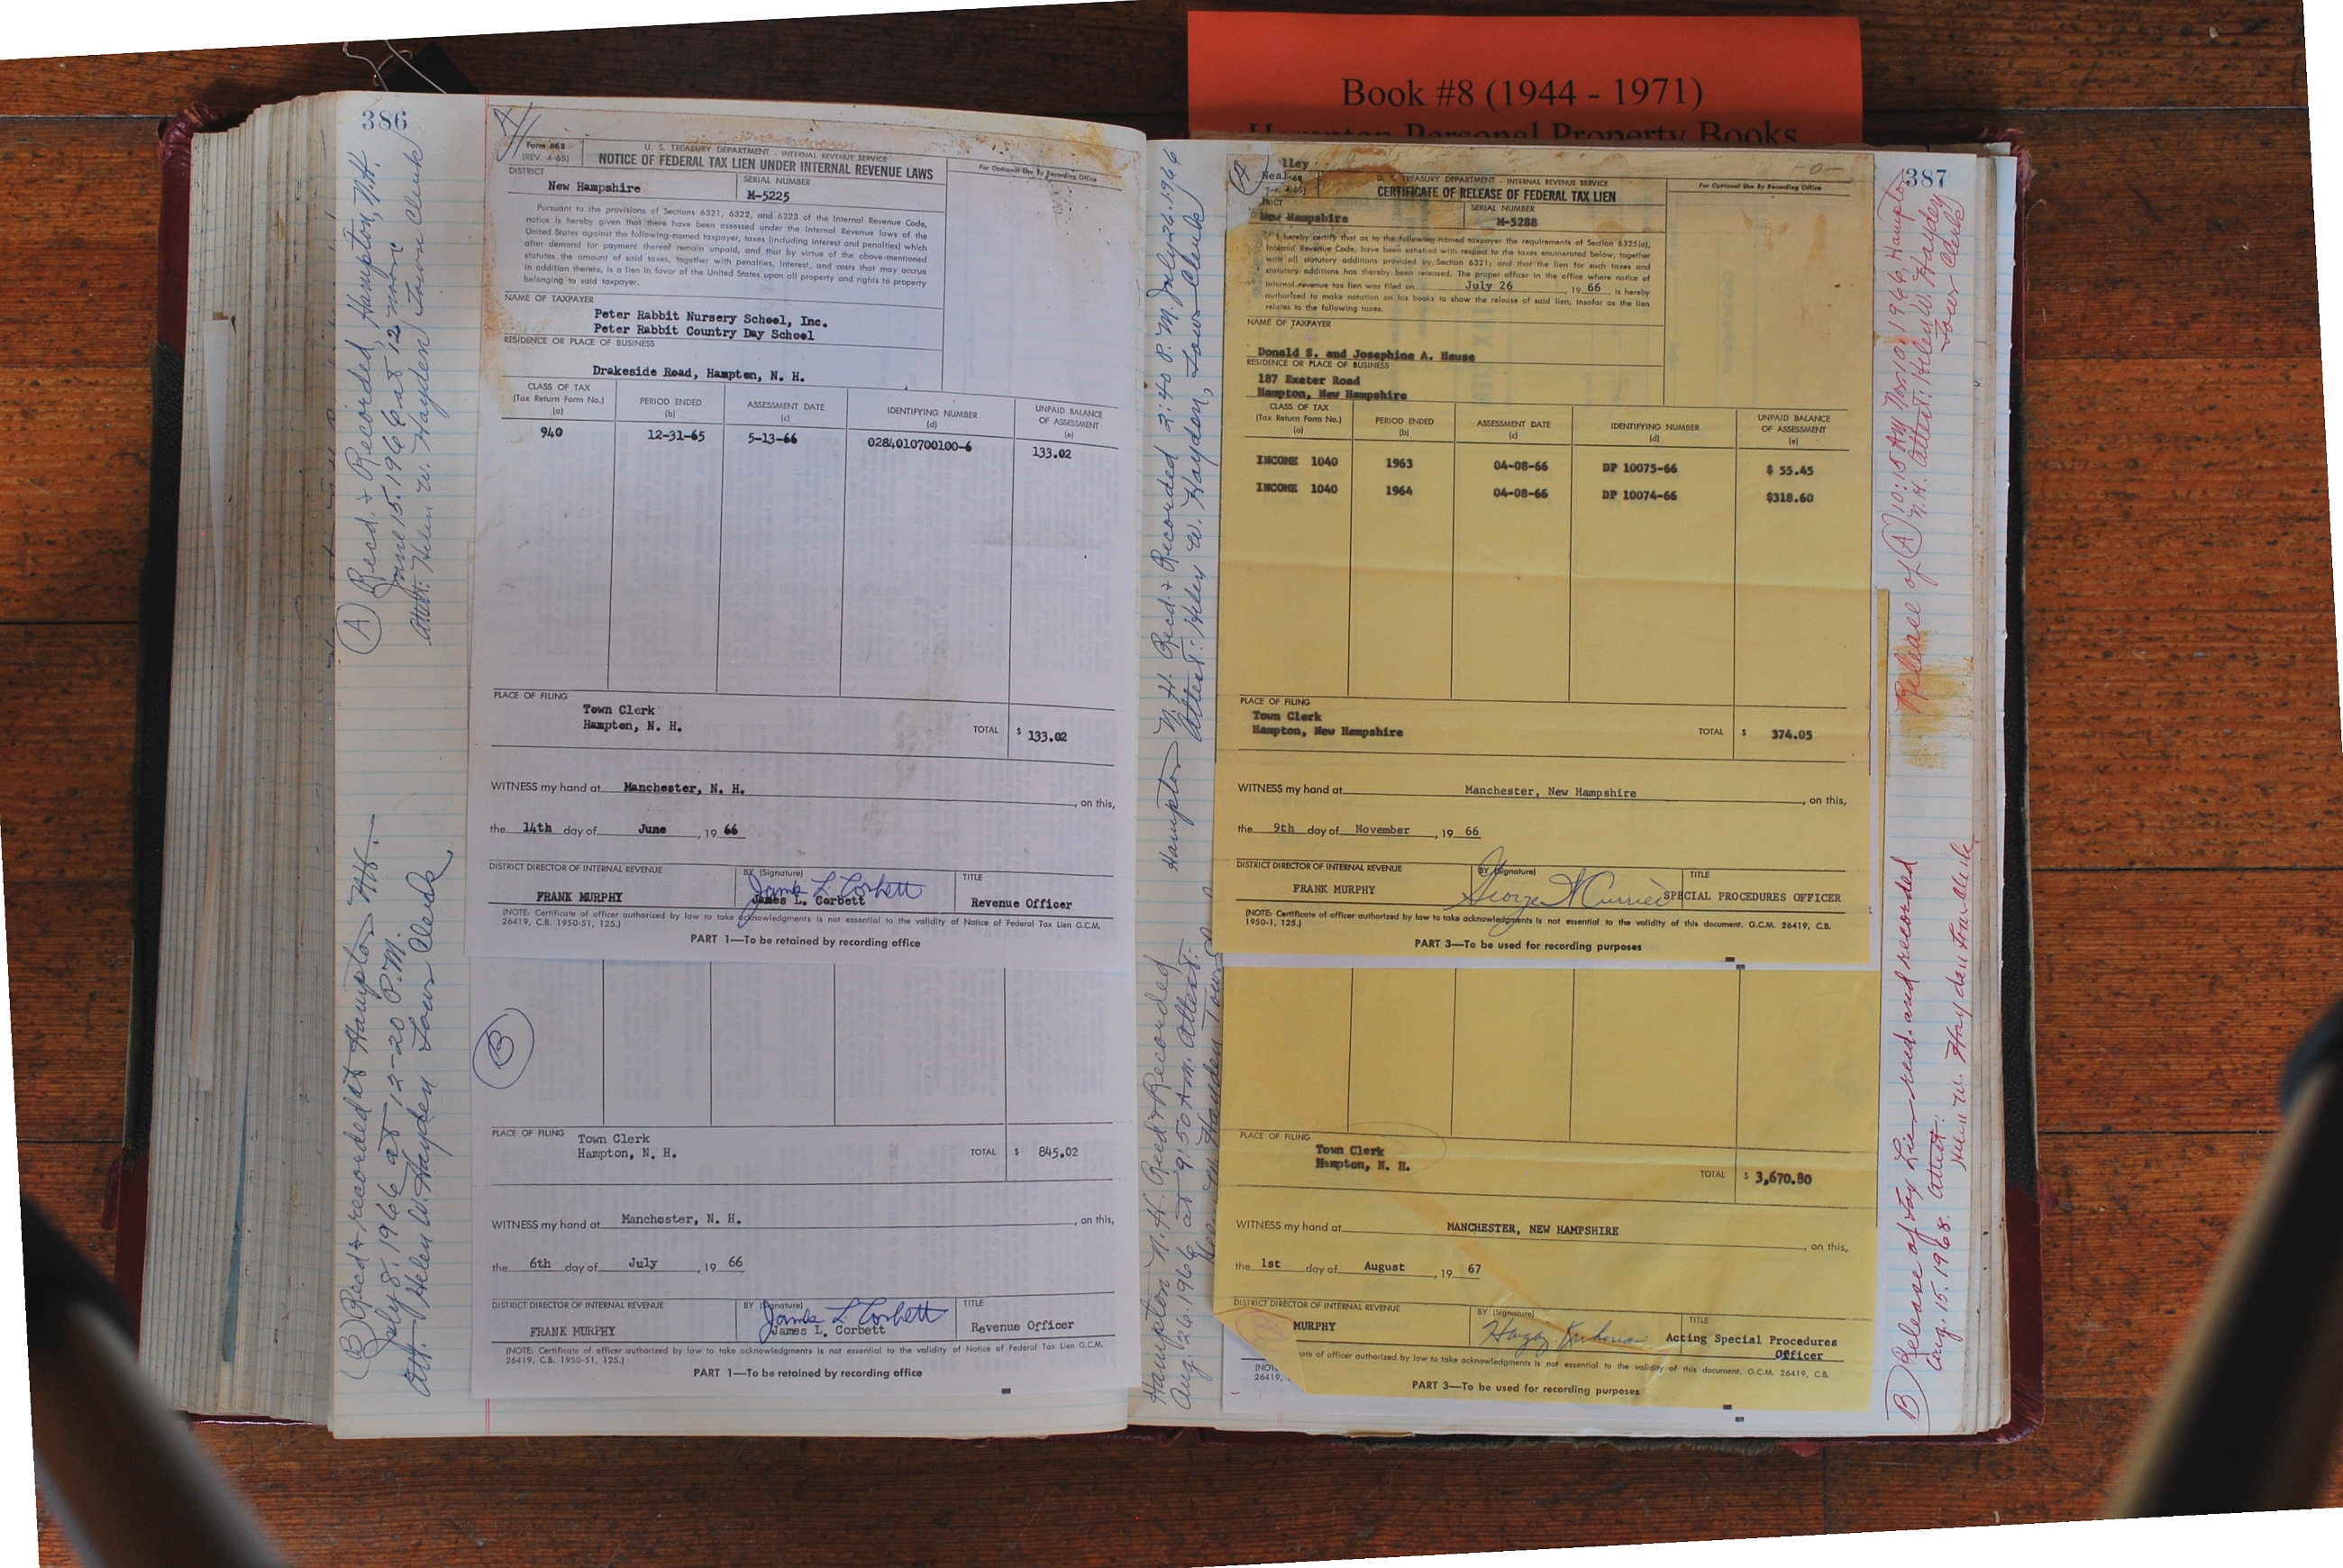 Book #8 (1944 - 1971)
Hampton Personal Property Books
386
(A) Recd. + Recorded, Hampton, N.H.
June 15, 1966 at 12 noon
Attest: Helen W. Hayden Town Clerk
(B) Recd + recorded at Hampton N.H.
July 8, 1966 at 12-20 P.M.
Att. Helen W. Hayden Town Clerk
A
Form 668
(REV. 4-65)
U. S. TREASURY DEPARTMENT - INTERNAL REVENUE SERVICE
NOTICE OF FEDERAL TAX LIEN UNDER INTERNAL REVENUE LAWS
For Optional Use by Recording Office
DISTRICT
New Hampshire
SERIAL NUMBER
M-5225
Pursuant to the provisions of Sections 6321, 6322, and 6323 of the Internal Revenue Code,
notice is hereby given that there have been assessed under the Internal Revenue laws of the
United States against the following-named taxpayer, taxes (including interest and penalties) which
after demand for payment thereof remain unpaid, and that by virtue of the above-mentioned
statutes the amount of said taxes, together with penalties, interest, and costs that may accrue
in addition thereto, is a lien in favor of the United States upon all property and rights to property
belonging to said taxpayer.
NAME OF TAXPAYER
Peter Rabbit Nursery School, Inc.
Peter Rabbit Country Day School
RESIDENCE OR PLACE OF BUSINESS
Drakeside Road, Hampton, N. H.
CLASS OF TAX (Tax Return Form No.) (a) PERIOD ENDED (b) ASSESSMENT DATE (c) IDENTIFYING NUMBER (d) UNPAID BALANCE OF ASSESSMENT (e)
940 12-31-65 5-13-66 0284010700100-6 133.02
PLACE OF FILING
Town Clerk
Hampton, N. H.
TOTAL $ 133.02
WITNESS my hand at Manchester, N. H. , on this,
the 14th day of June , 19 66
DISTRICT DIRECTOR OF INTERNAL REVENUE
FRANK MURPHY
BY (Signature)
James L. Corbett
James L. Corbett
TITLE
Revenue Officer
(NOTE: Certificate of officer authorized by law to take acknowledgments is not essential to the validity of Notice of Federal Tax Lien G.C.M.
26419, C.B. 1950-51, 125.)
PART 1—To be retained by recording office
B
PLACE OF FILING
Town Clerk
Hampton, N. H.
TOTAL $ 845.02
WITNESS my hand at Manchester, N. H. , on this,
the 6th day of July , 19 66
DISTRICT DIRECTOR OF INTERNAL REVENUE
FRANK MURPHY
BY (Signature)
James L. Corbett
James L. Corbett
TITLE
Revenue Officer
(NOTE: Certificate of officer authorized by law to take acknowledgments is not essential to the validity of Notice of Federal Tax Lien G.C.M.
26419, C.B. 1950-51, 125.)
PART 1—To be retained by recording office
387
Hampton N. H. Recd. + Recorded 2:40 P.M. July 26, 1966
Attest: Helen W. Hayden, Town Clerk
Hampton N. H. Recd + Recorded
Aug. 26, 1966 at 9:50 A.M. Attest:
Helen W. Hayden Town
A
lley
Neal
4-65)
U. S. TREASURY DEPARTMENT - INTERNAL REVENUE SERVICE
CERTIFICATE OF RELEASE OF FEDERAL TAX LIEN
-0-
For Optional Use by Recording Office
TRICT
New Hampshire
SERIAL NUMBER
M-5288
I hereby certify that as to the following-named taxpayer the requirements of Section 6325(a),
Internal Revenue Code, have been satisfied with respect to the taxes enumerated below, together
with all statutory additions provided by Section 6321; and that the lien for such taxes and
statutory additions has thereby been released. The proper officer in the office where notice of
internal revenue tax lien was filed on July 26 , 19 66, is hereby
authorized to make notation on his books to show the release of said lien, insofar as the lien
relates to the following taxes.
NAME OF TAXPAYER
Donald S. and Josephine A. Hause
RESIDENCE OR PLACE OF BUSINESS
187 Exeter Road
Hampton, New Hampshire
CLASS OF TAX (Tax Return Form No.) (a) PERIOD ENDED (b) ASSESSMENT DATE (c) IDENTIFYING NUMBER (d) UNPAID BALANCE OF ASSESSMENT (e)
INCOME 1040 1963 04-08-66 DP 10075-66 $ 55.45
INCOME 1040 1964 04-08-66 DP 10074-66 $318.60
PLACE OF FILING
Town Clerk
Hampton, New Hampshire
TOTAL $ 374.05
WITNESS my hand at Manchester, New Hampshire , on this,
the 9th day of November , 19 66
DISTRICT DIRECTOR OF INTERNAL REVENUE
FRANK MURPHY
BY (Signature)
TITLE
SPECIAL PROCEDURES OFFICER
(NOTE: Certificate of officer authorized by law to take acknowledgments is not essential to the validity of this document. G.C.M. 26419, C.B.
1950-1, 125.)
PART 3—To be used for recording purposes
PLACE OF FILING
Town Clerk
Hampton, N. H.
TOTAL $ 3,670.80
WITNESS my hand at MANCHESTER, NEW HAMPSHIRE , on this,
the 1st day of August , 19 67
DISTRICT DIRECTOR OF INTERNAL REVENUE
MURPHY
BY (Signature)
TITLE
Acting Special Procedures
Officer
(NOTE
26419,
cate of officer authorized by law to take acknowledgments is not essential to the validity of this document. G.C.M. 26419, C.B.
PART 3—To be used for recording purposes
Release of (A) 10:15 AM Nov 10, 1966, Hampton
N.H. Attest: Helen W. Hayden
Town Clerk
(B) Release of Tax Lien recd. and recorded
Aug. 15, 1968. Attest:
Helen W. Hayden Town Clerk